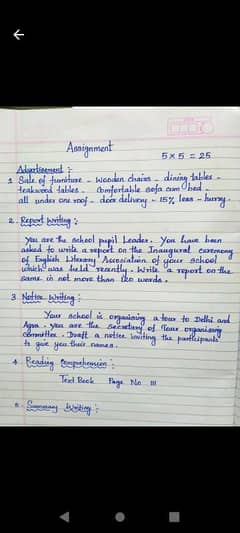 Assignment
5 x 5 = 25
Advertisement :-
1. Sale of furniture - wooden chairs - dining tables -
teakwood tables - Comfortable sofa cum bed -
all under one roof - door delivery - 15% less - hurry.
2. Report Writing :-
You are the school pupil Leader. You have been
asked to write a report on the Inaugural ceremony
of English Literary Association of your school
which was held recently. Write a report on the
same in not more than 120 words.
3 Notice Writing :-
Your school is organising a tour to Delhi and
Agra. You are the secretary of Tour organising
committee. Draft a notice inviting the participants
to give you their names.
4. Reading Comprehension :-
Text Book Page No 111
5. Summary Writing :-